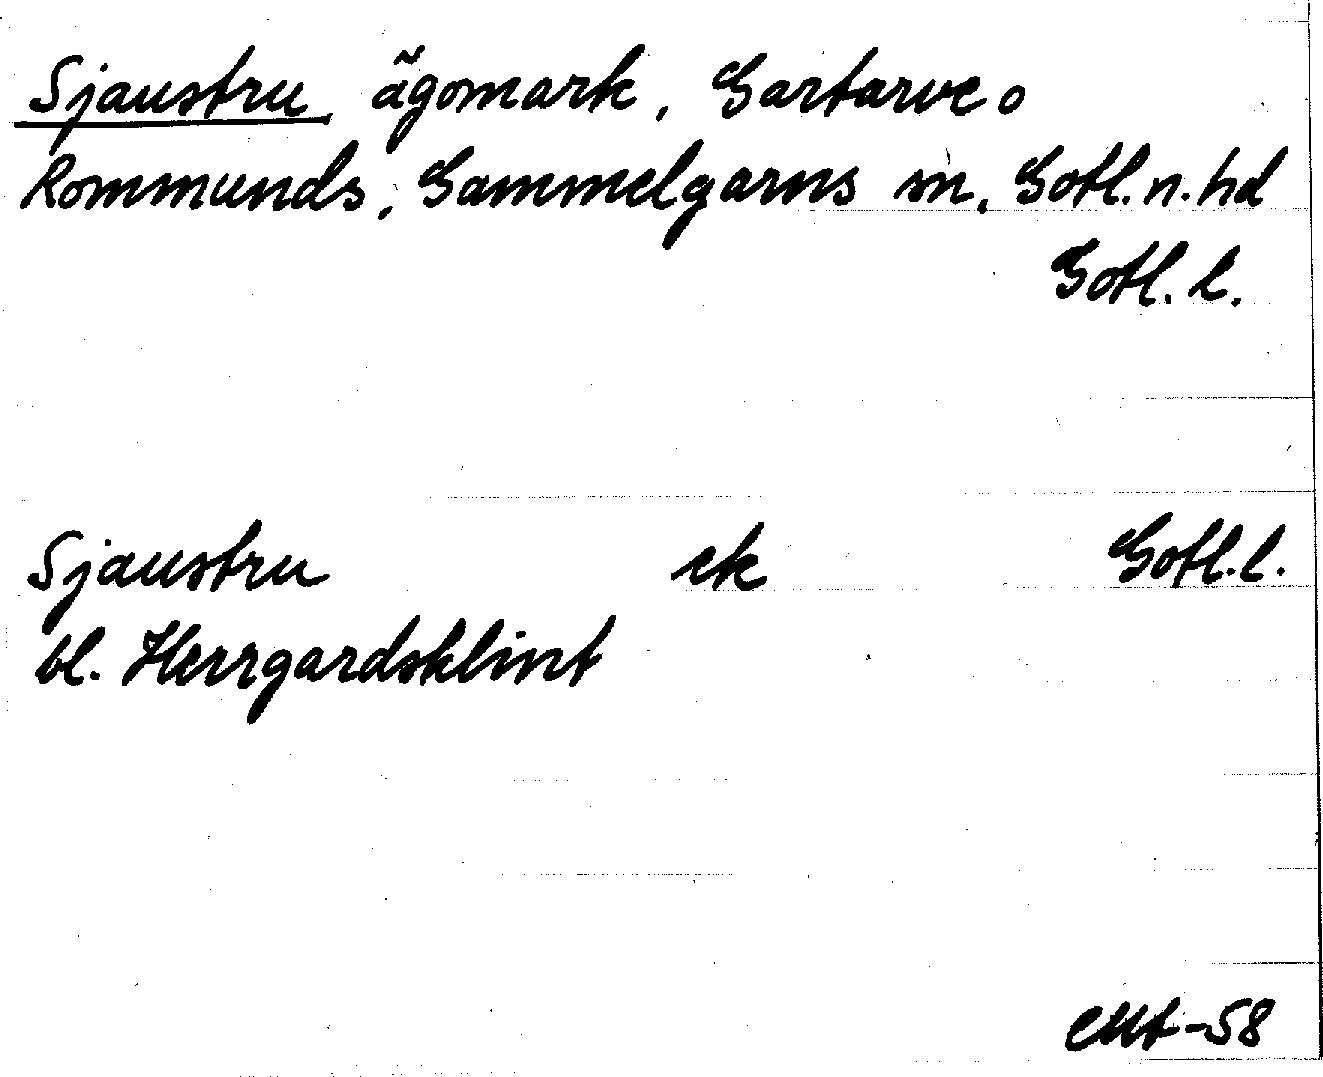 Sjaustru, ägomark, Gartarve o
Rommunds, Gammelgarns sn, Gotl. n. hd
Gotl. l.
Sjaustru ek Gotl. l.
bl. Herrgardsklint
-58